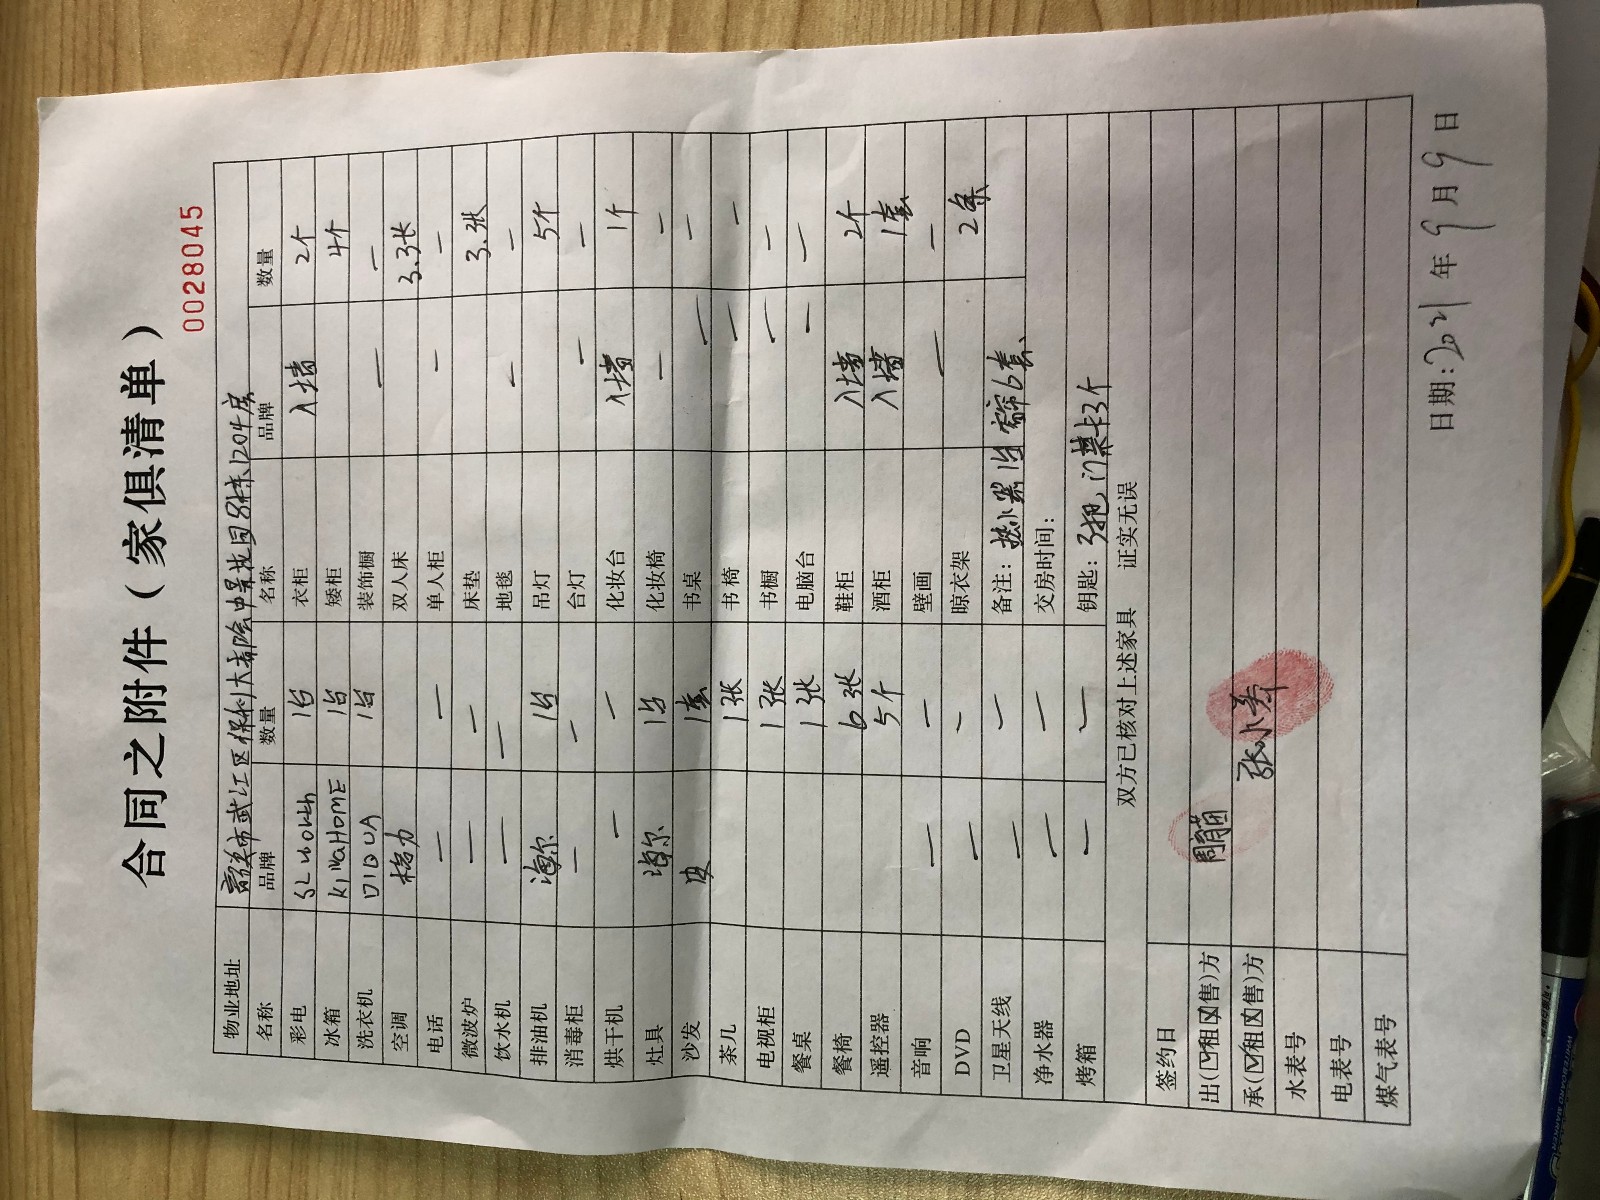 合同之附件（家俱清单）
0028045
物业地址 市武江区保利大都会中景花园8栋1204房
名称 品牌 数量 名称 品牌 数量
彩电 1台 衣柜 入墙 2个
冰箱 KINGHOME 1台 矮柜 4个
洗衣机 DIQUA 1台 装饰橱 — —
空调 格力 双人床 3.3张
电话 — — 单人柜 — —
微波炉 — — 床垫 3.张
饮水机 — — 地毯 — —
排油机 海尔 1台 吊灯 5个
消毒柜 — — 台灯 — —
烘干机 — — 化妆台 入墙 1个
灶具 海尔 1台 化妆椅 — —
沙发 皮 1套 书桌 — —
茶几 1张 书椅 — —
电视柜 1张 书橱 — —
餐桌 1张 电脑台 — —
餐椅 6张 鞋柜 入墙 2个
遥控器 5个 酒柜 入墙 1套
音响 — — 壁画 — —
DVD — — 晾衣架 2条
卫星天线 — — 备注：热水器1台 窗帘6套、
净水器 — — 交房时间：
烤箱 — — 钥匙：3把，门禁卡3个
双方已核对上述家具 证实无误
签约日
出(☑租☒售)方
承(☑租☒售)方 张小
水表号
电表号
煤气表号
日期：2021年9月9日